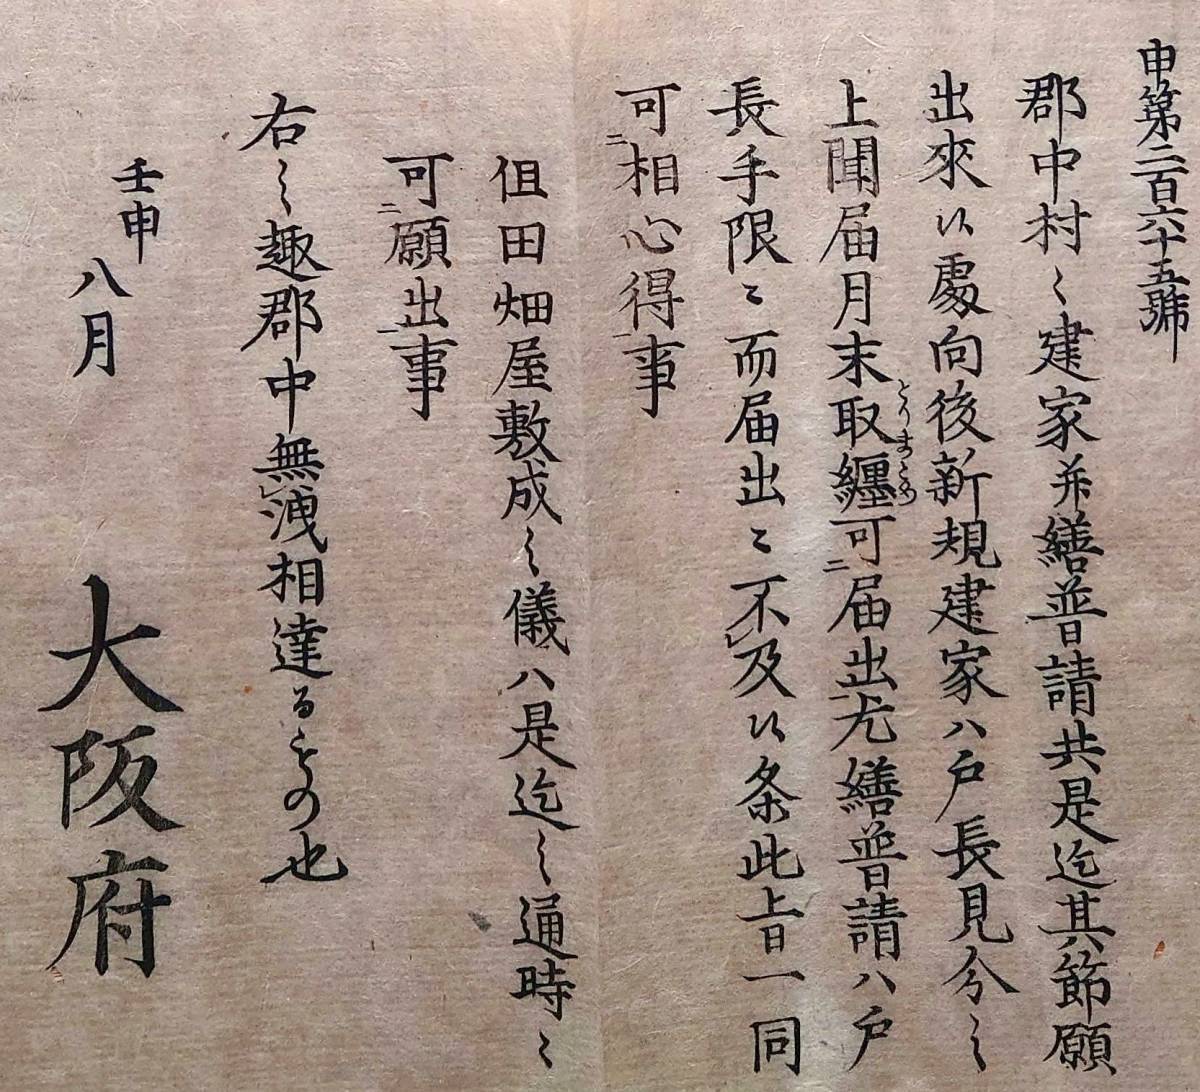 申第二百六十五號
郡中村〻建家并繕普請共是迄其節願
出來候處向後新規建家ハ戸長見分之
上聞届月末取纏可届出尤繕普請ハ戸
とりまとめ
長手限ニ而届出ニ不及候条此旨一同
可相心得事
但田畑屋敷成之儀ハ是迄之通時〻
可願出事
右之趣郡中無洩相達るもの也
壬申
八月
大阪府